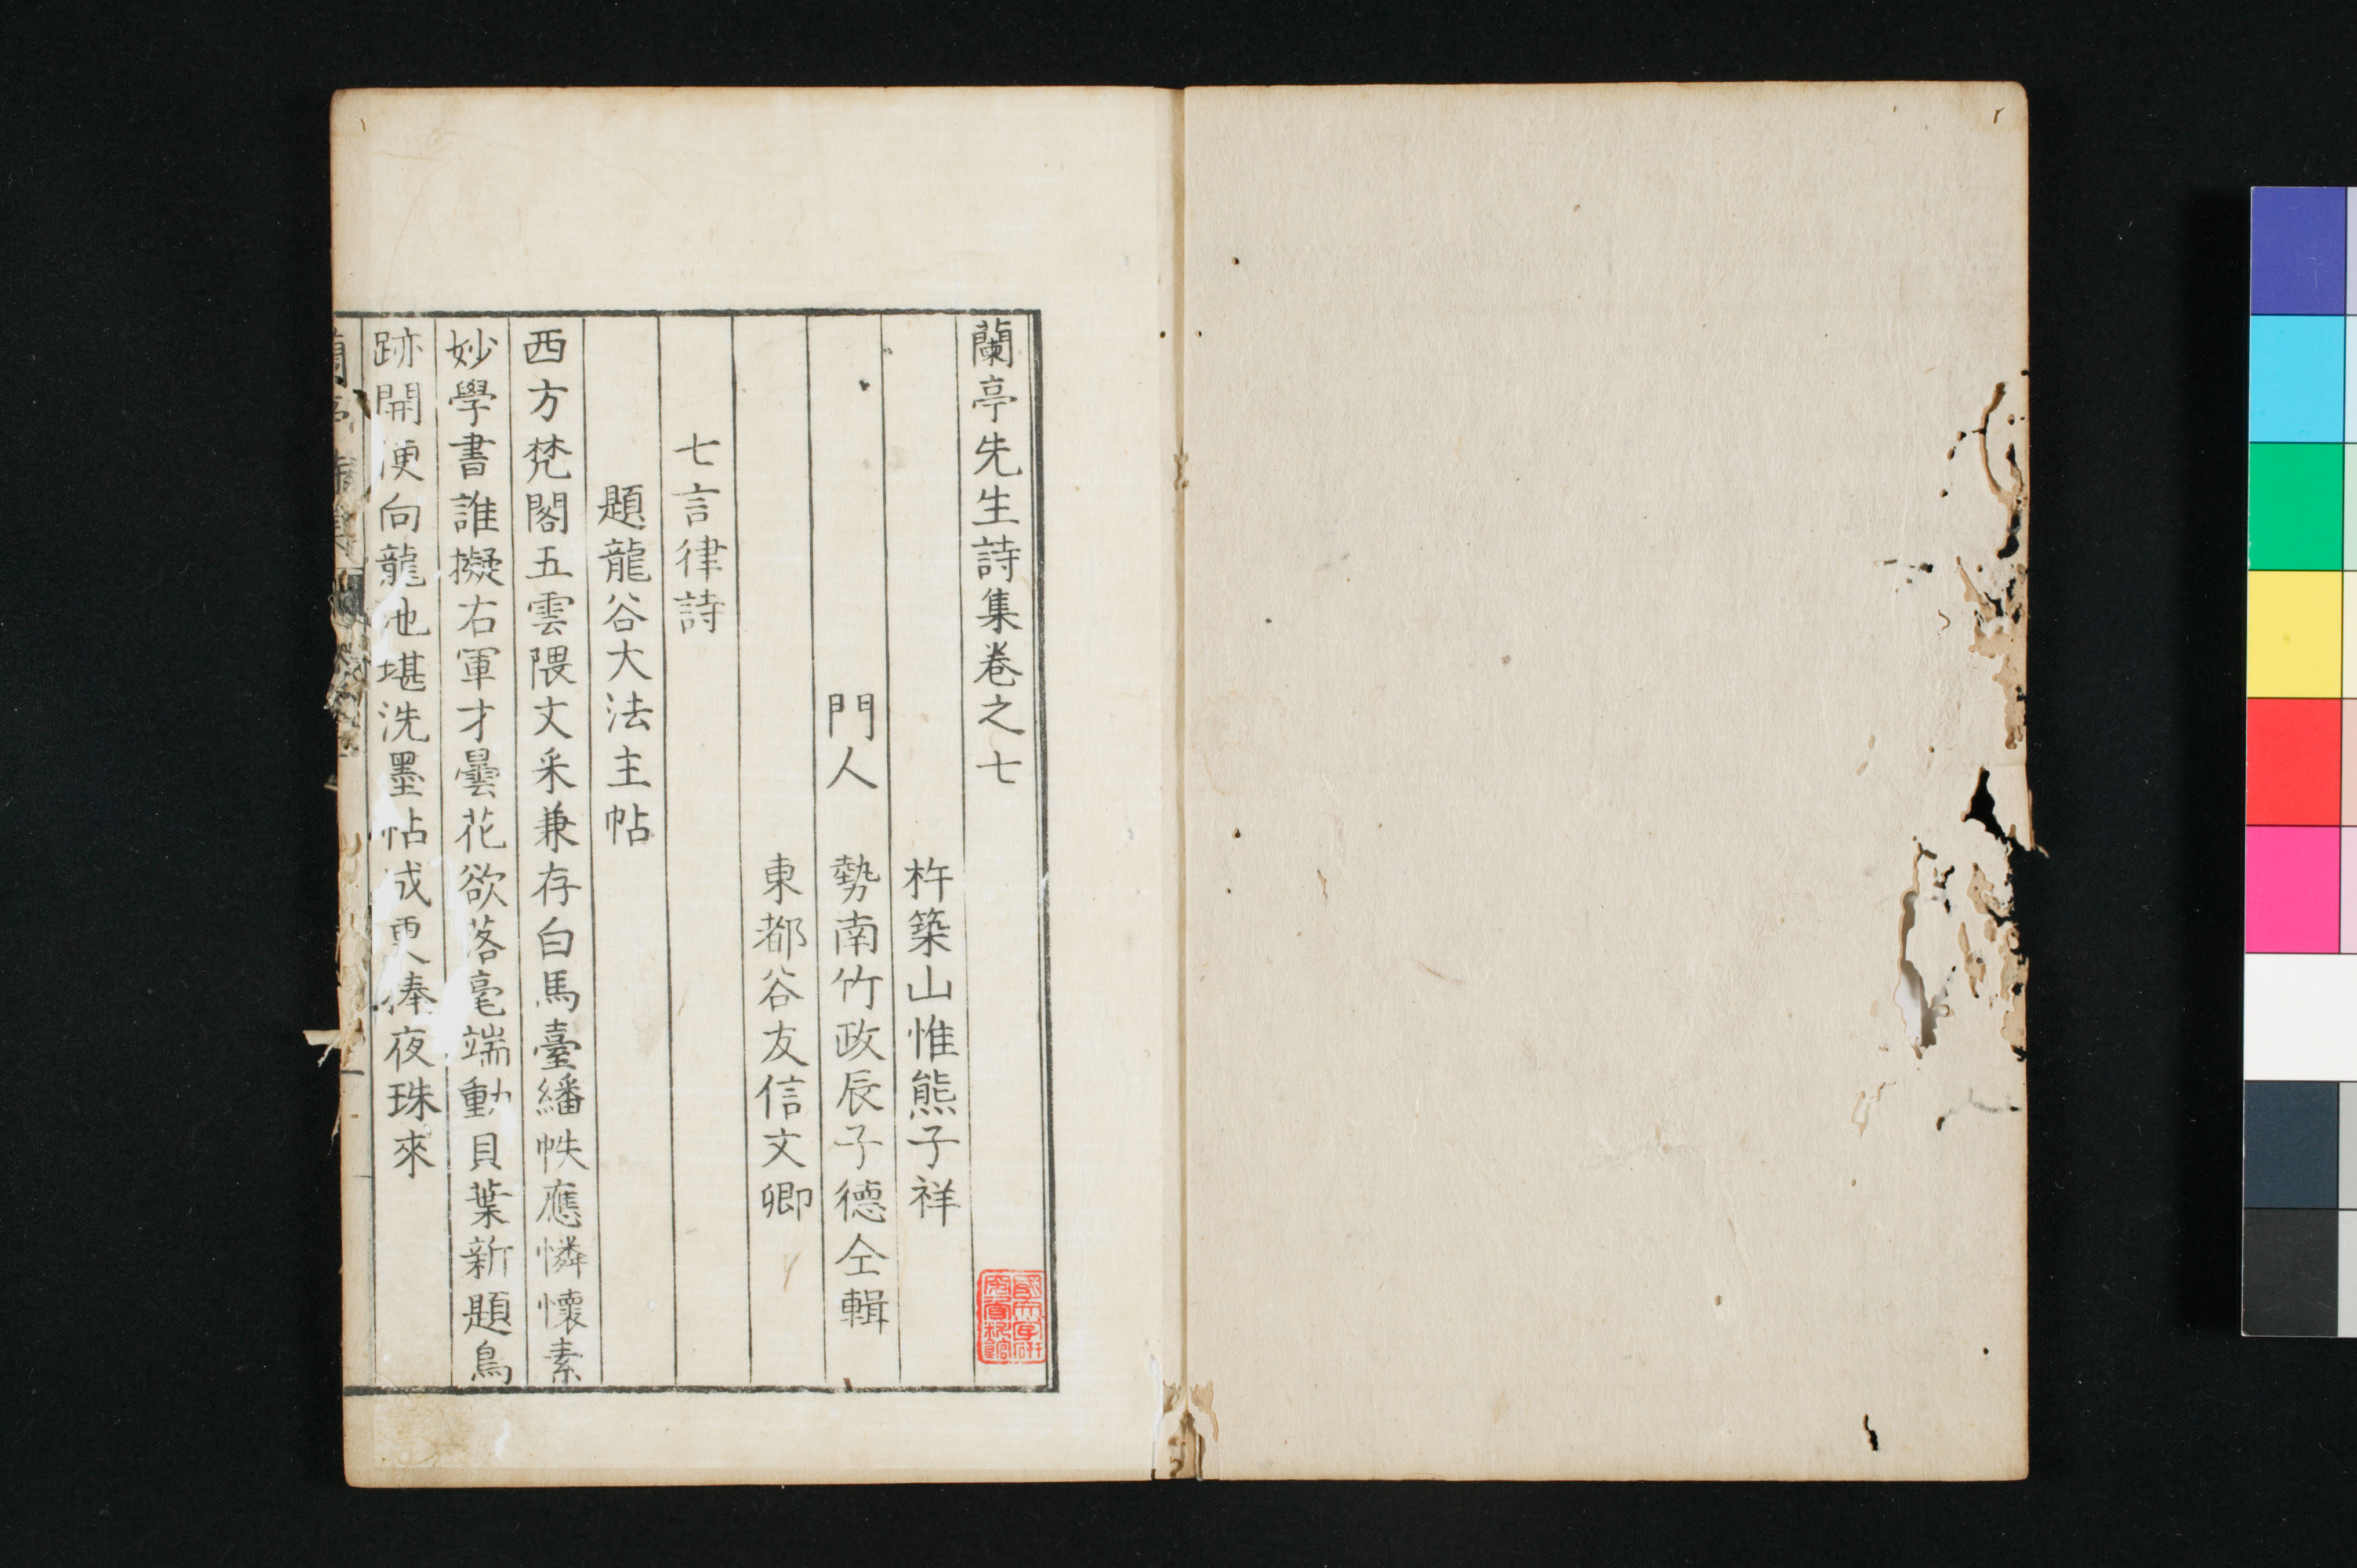 蘭亭先生詩集卷之七
杵築山惟熊子祥
門人　勢南竹政辰子德仝輯
東都谷友信文卿
七言律詩
題龍谷大法主帖
西方梵閣五雲隈文采兼存白馬臺繙帙應憐懷素
妙學書誰擬右軍才曇花欲落毫端動貝葉新題鳥
跡開便向龍池堪洗墨帖成更捧夜珠來